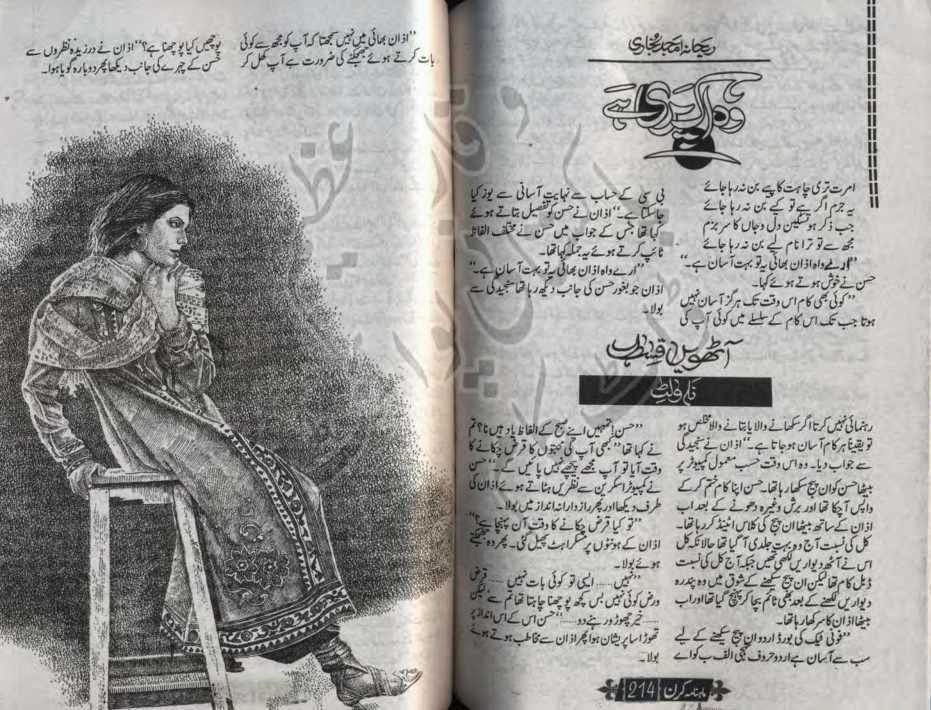 ریحانہ امجد بخاری
وہ اک پری ہے
امرت تری چاہت کا پیے بن نہ رہا جائے
یہ جرم اگر ہے تو کیے بن نہ رہا جائے
جب ذکر ہو تسکین دل و جاں کا سر بزم
مجھ سے تو ترا نام لیے بن نہ رہا جائے
"ارے واہ اذان بھائی یہ تو بہت آسان ہے۔"
حسن نے خوش ہوتے ہوئے کہا۔
"کوئی بھی کام اس وقت تک ہرگز آسان نہیں
ہوتا جب تک اس کام کے سلسلے میں کوئی آپ کی
آٹھویں قسط
ناولٹ
رہنمائی نہیں کرتا اگر سکھانے والا یا بتانے والا مخلص ہو
تو یقیناً ہر کام آسان ہو جاتا ہے۔" اذان نے سنجیدگی
سے جواب دیا۔ وہ اس وقت حسب معمول کمپیوٹر پر
بیٹھا حسن کو ان پیج سکھا رہا تھا۔ حسن اپنا کام ختم کر کے
واپس آ چکا تھا اور برش وغیرہ دھونے کے بعد اب
اذان کے ساتھ بیٹھا ان پیج کی کلاس اٹینڈ کر رہا تھا۔
کل کی نسبت آج وہ بہت جلدی آ گیا تھا حالانکہ کل
اس نے آٹھ دیواریں لکھی تھیں جبکہ آج کل کی نسبت
ڈبل کام تھا لیکن ان پیج سیکھنے کے شوق میں وہ پندرہ
دیواریں لکھنے کے بعد بھی ٹائم بچا کر پہنچ گیا تھا اور اب
بیٹھا اذان کا سر کھا رہا تھا۔
"فونی ٹیک کی بورڈ اردو ان پیج سیکھنے کے لیے
سب سے آسان ہے اردو حروف تہجی الف ب کو اے
بی سی کے حساب سے نہایت آسانی سے یوز کیا
جا سکتا ہے۔" اذان نے حسن کو تفصیل بتاتے ہوئے
کہا تھا جس کے جواب میں حسن نے مختلف الفاظ
ٹائپ کرتے ہوئے یہ جملہ کہا تھا۔
"ارے واہ اذان بھائی یہ تو بہت آسان ہے۔"
اذان جو بغور حسن کی جانب دیکھ رہا تھا سنجیدگی سے
بولا۔
"حسن! تمہیں اپنے میسج کے الفاظ یاد ہیں نا؟ تم
نے کہا تھا "کبھی آپ کی محبتوں کا قرض چکانے کا
وقت آیا تو آپ مجھے پیچھے نہیں پائیں گے۔" حسن
نے کمپیوٹر اسکرین سے نظریں ہٹاتے ہوئے اذان کی
طرف دیکھا اور پھر رازدارانہ انداز میں بولا۔
"تو کیا قرض چکانے کا وقت آن پہنچا ہے؟"
اذان کے ہونٹوں پر مسکراہٹ پھیل گئی۔ پھر وہ جھجکتے
ہوئے بولا۔
"نہیں ..... ایسی تو کوئی بات نہیں ..... قرض
ورض کوئی نہیں بس کچھ پوچھنا چاہتا تھا تم سے لیکن
..... خیر چھوڑو رہنے دو....." حسن اس کے اس انداز پر
تھوڑا سا پریشان ہوا پھر اذان سے مخاطب ہوتے ہوئے
بولا۔
ماہنامہ کرن 214
"اذان بھائی میں نہیں سمجھتا کہ آپ کو مجھ سے کوئی
بات کرتے ہوئے جھجکنے کی ضرورت ہے آپ کھل کر
پوچھیں کیا پوچھنا ہے؟" اذان نے دزدیدہ نظروں سے
حسن کے چہرے کی جانب دیکھا پھر دوبارہ گویا ہوا۔